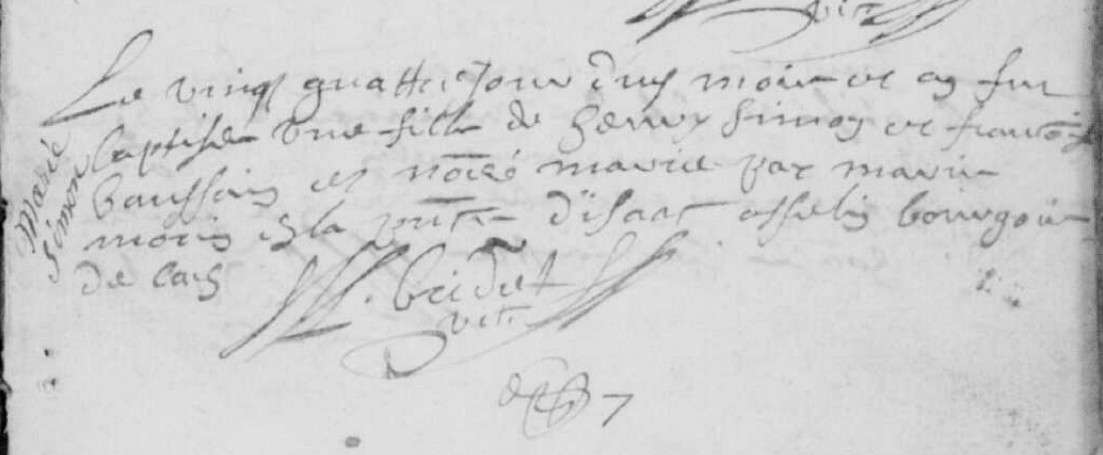 Marie
Simon
Le vingt quattre Jour dud mois et an fut
baptisée une fille de henry Simon et francoise
baussain et nōmé marie par marie
morin en la pntce d'isaac asselin bourgois
de Caen
Bridet
vic